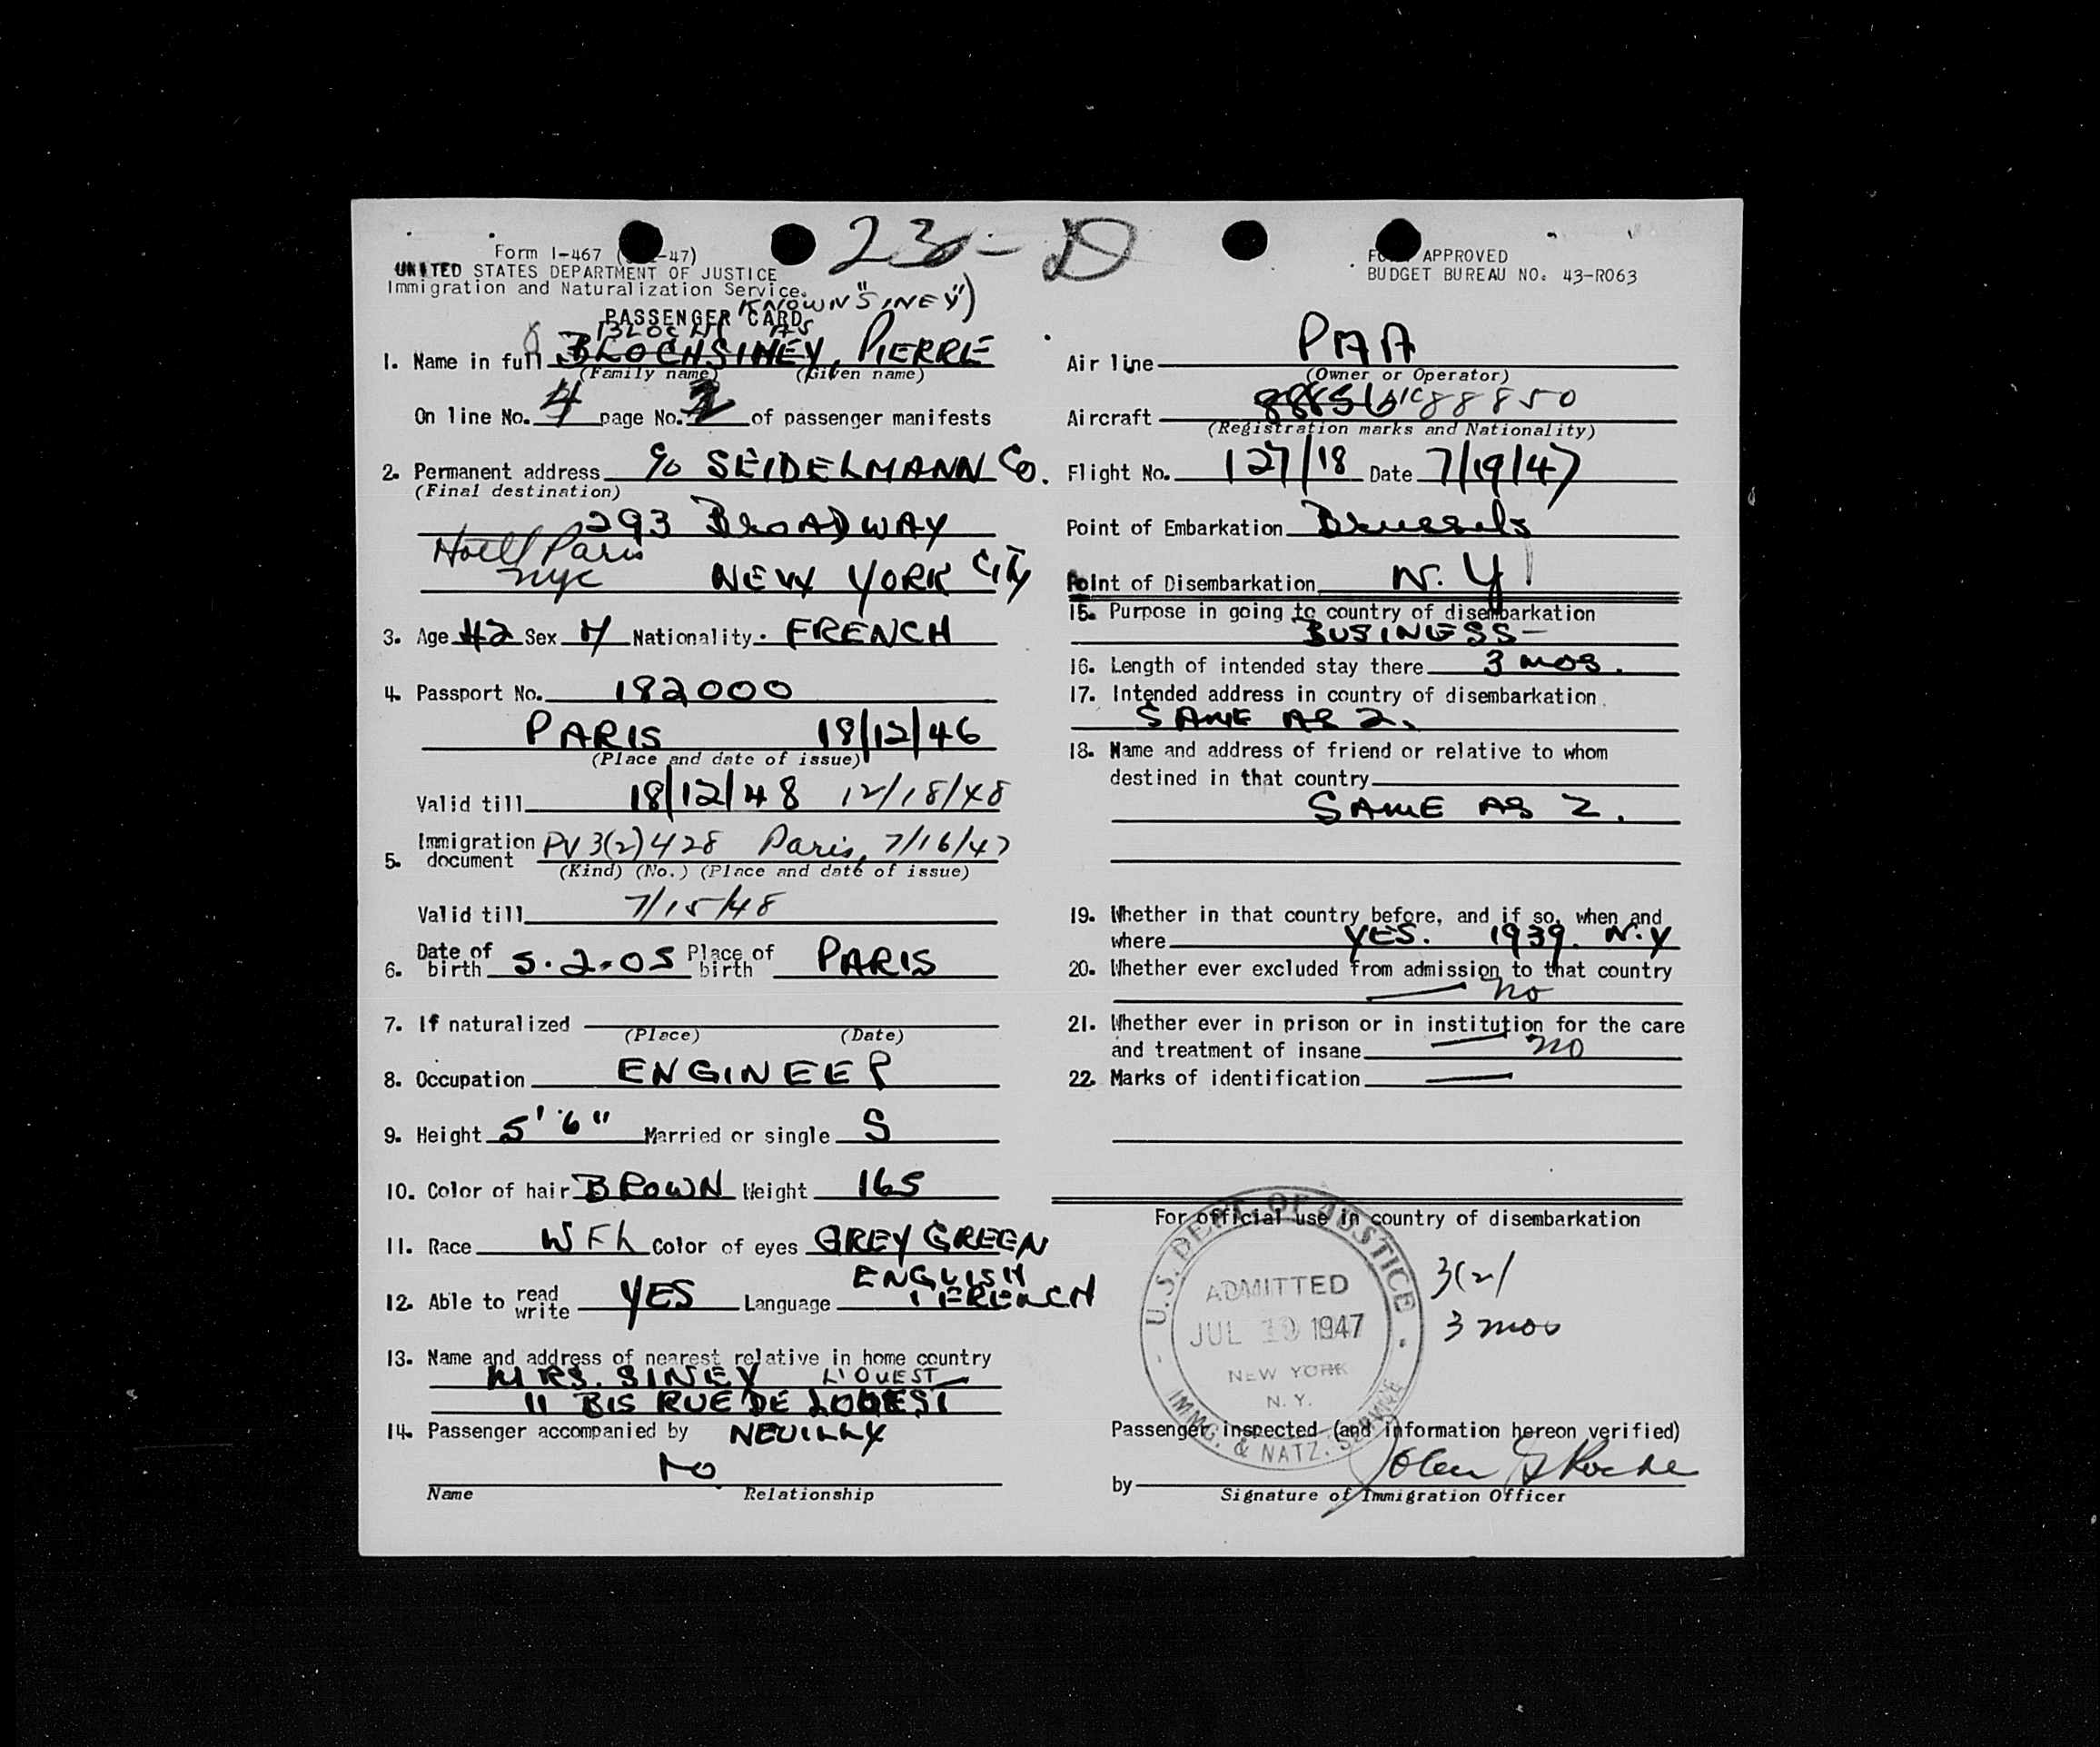 23-D
Form I-467 ( -47)
UNITED STATES DEPARTMENT OF JUSTICE
Immigration and Naturalization Service.
PASSENGER CARD
BLOCH KNOWN AS "SINEY")
1. Name in full BLOCHSINEY, PIERRE
(Family name) (Given name)
On line No. 4 page No. 2 of passenger manifests
2. Permanent address c/o SEIDELMANN Co.
(Final destination)
293 BROADWAY
Hotel Paris
nyc NEW YORK CITY
3. Age 42 Sex M Nationality. FRENCH
4. Passport No. 182000
PARIS 18/12/46
(Place and date of issue)
Valid till 18/12/48 12/18/48
5. Immigration document PV 3(2) 428 Paris, 7/16/47
(Kind) (No.) (Place and date of issue)
Valid till 7/15/48
6. Date of birth 5.2.05 Place of birth PARIS
7. If naturalized
(Place) (Date)
8. Occupation ENGINEER
9. Height 5'6" Married or single S
10. Color of hair BROWN Weight 165
11. Race W Color of eyes GREY GREEN
12. Able to read write YES Language ENGLISH FRENCH
13. Name and address of nearest relative in home country
MRS. SINEY L'OUEST
11 BIS RUE DE LOUEST
14. Passenger accompanied by NEUILLY
NO
Name Relationship
FORM APPROVED
BUDGET BUREAU NO. 43-R063
Air line PAA
(Owner or Operator)
Aircraft NC88850
(Registration marks and Nationality)
Flight No. 127/18 Date 7/19/47
Point of Embarkation Brussels
Point of Disembarkation N.Y.
15. Purpose in going to country of disembarkation
BUSINESS-
16. Length of intended stay there 3 mos.
17. Intended address in country of disembarkation
SAME AS 2.
18. Name and address of friend or relative to whom
destined in that country
SAME AS 2.
19. Whether in that country before, and if so, when and
where YES. 1939. N.Y
20. Whether ever excluded from admission to that country
— no
21. Whether ever in prison or in institution for the care
and treatment of insane — no
22. Marks of identification —
For official use in country of disembarkation
U.S. DEPT. OF JUSTICE
ADMITTED
JUL 19 1947
NEW YORK
N. Y.
IMMG. & NATZ. SERVICE
3(2)
3 mos
Passenger inspected (and information hereon verified)
by
Signature of Immigration Officer